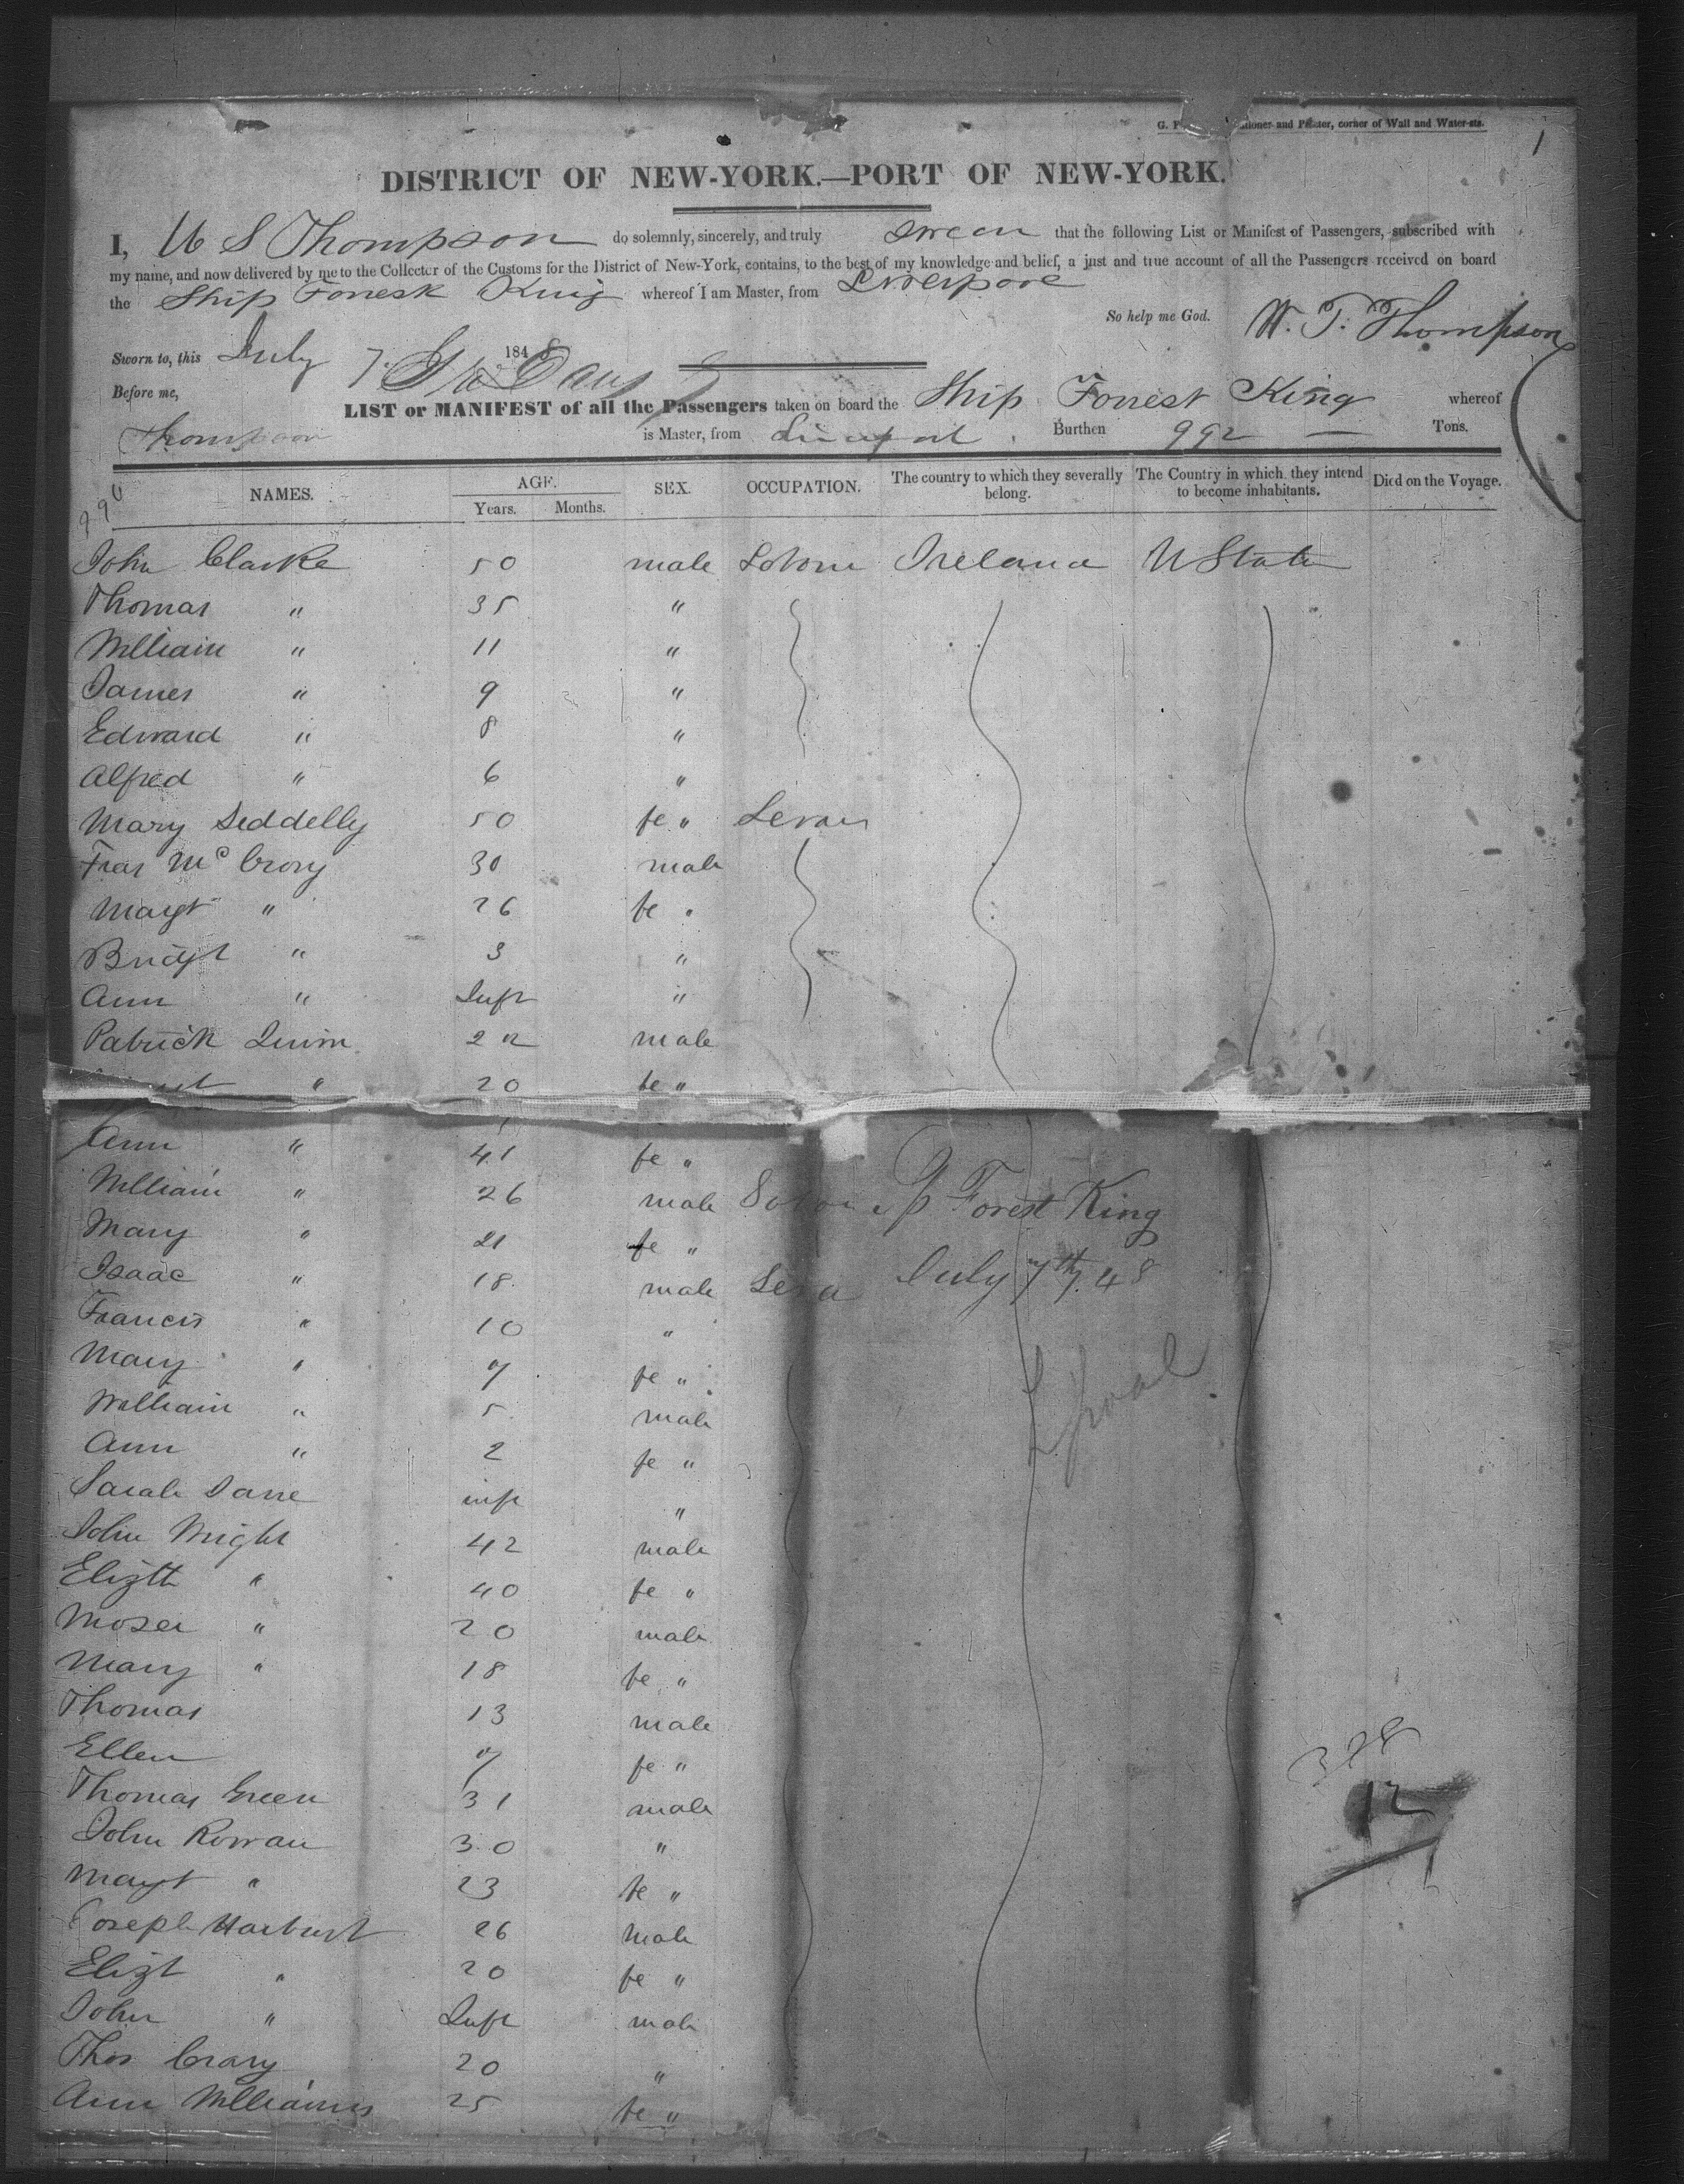 1
Stationer and Printer, corner of Wall and Water-sts.
DISTRICT OF NEW-YORK.—PORT OF NEW-YORK.
I, W S Thompson do solemnly, sincerely, and truly swear that the following List or Manifest of Passengers, subscribed with
my name, and now delivered by me to the Collector of the Customs for the District of New-York, contains, to the best of my knowledge and belief, a just and true account of all the Passengers received on board
the Ship Forrest King whereof I am Master, from Liverpool
So help me God. W. T. Thompson
Sworn to, this July 7. 1848
Before me,
LIST or MANIFEST of all the Passengers taken on board the Ship Forrest King whereof
Thompson is Master, from Liverpool. Burthen 992 — Tons.
990
NAMES. AGE. SEX. OCCUPATION. The country to which they severally belong. The Country in which they intend to become inhabitants. Died on the Voyage.
Years. Months.
John Clarke 50 male Ireland U State
Thomas " 35 "
William " 11 "
James " 9 "
Edward " 8 "
Alfred " 6 "
Mary Seddelly 50 fe "
Fras McCrory 30 male
Margt " 26 fe "
Bridgt " 3 "
Ann " Inft "
Patrick Quinn 22 male
" 20 fe "
Ann " 41 fe "
William " 26 male
Mary " 21 fe "
Isaac " 18 male
Francis " 10 "
Mary " 7 fe "
William " 5 male
Ann " 2 fe "
Sarah Jane inft "
John Wright 42 male
Elizth " 40 fe "
Moses " 20 male
Mary " 18 fe "
Thomas 13 male
Ellen 7 fe "
Thomas Green 31 male
John Rowan 30 "
Margt " 23 fe "
Joseph Harburst 26 male
Elizt " 20 fe "
John " Inft male
Thos Crary 20 "
Ann Williams 25 fe "
Forest King
July 7th 48
Lpool
328
12